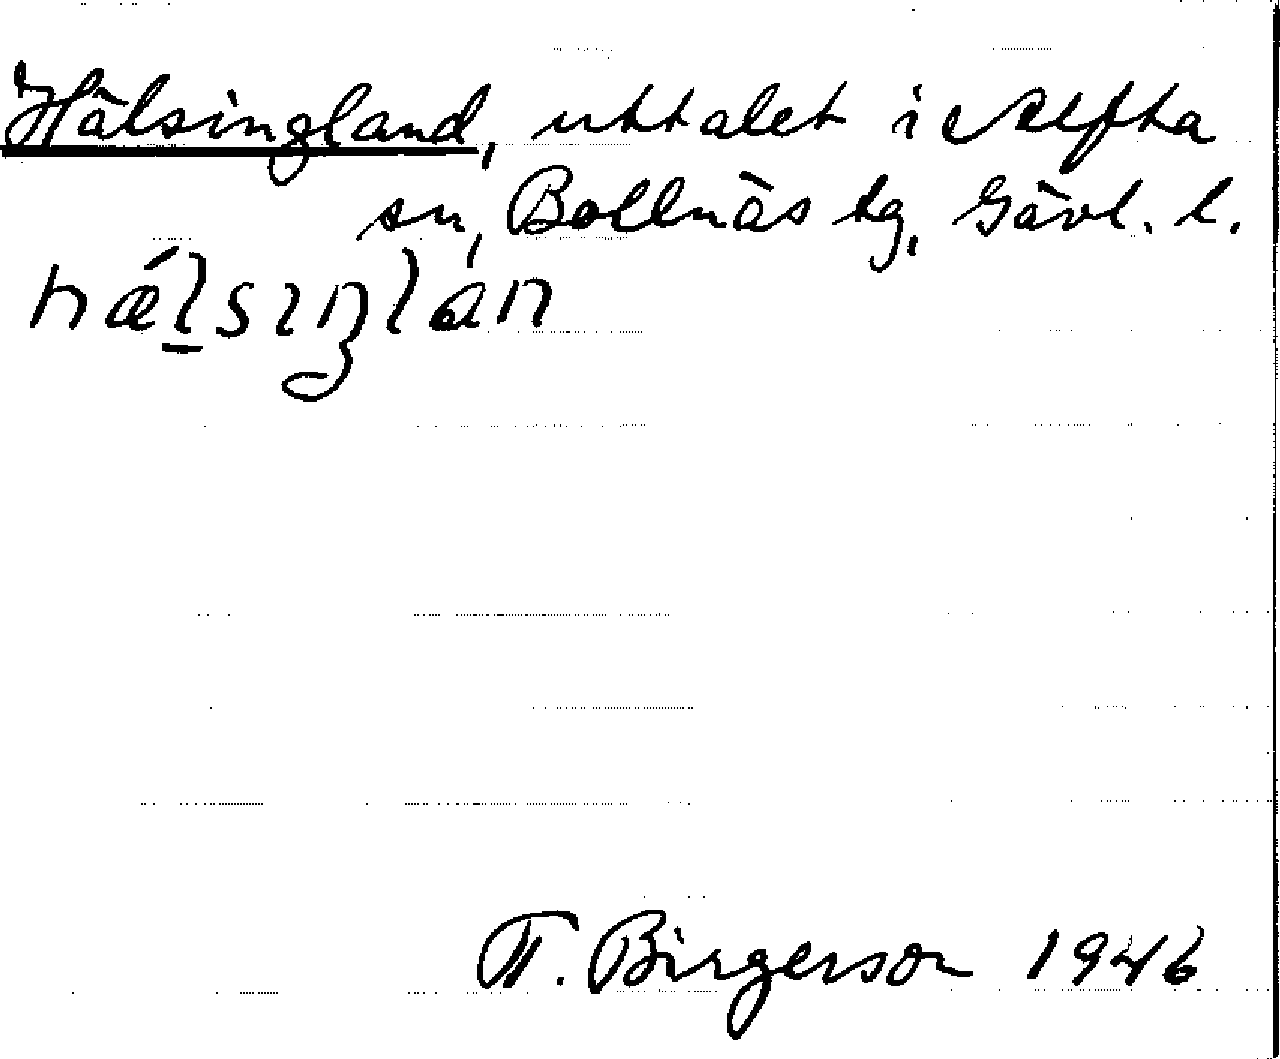 Hälsingland, uttalet i Alfta
sn, Bollnäs tg, Gävl. l.
hǽl̠sɪŋlán
T. Birgerson 1946